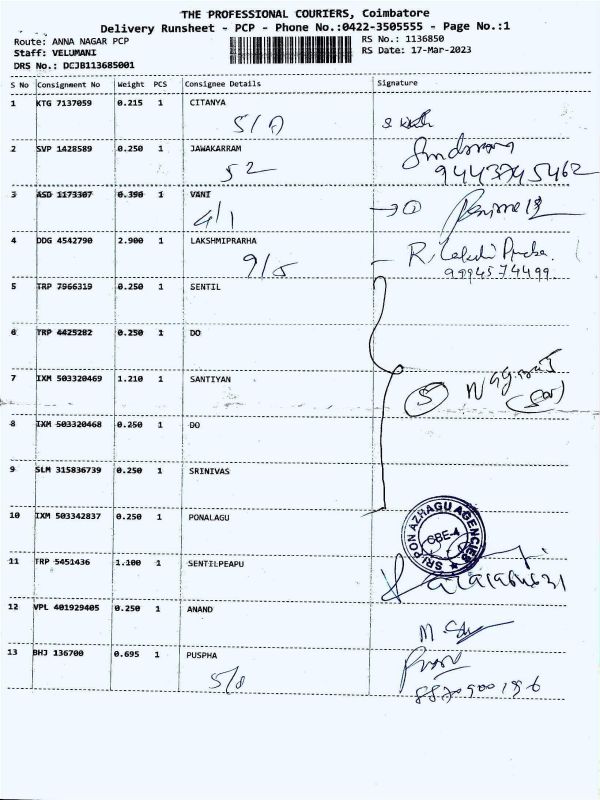 THE PROFESSIONAL COURIERS, Coimbatore
Delivery Runsheet - PCP - Phone No.:0422-3505555 - Page No.:1
Route: ANNA NAGAR PCP
Staff: VELUMANI
DRS No.: DCJB113685001
RS No.: 1136850
RS Date: 17-Mar-2023
S No Consignment No Weight PCS Consignee Details Signature
1 KTG 7137059 0.215 1 CITANYA
2 SVP 1428589 0.250 1 JAWAKARRAM
52
9443745462
3 ASD 1173307 0.390 1 VANI
4/1
4 DDG 4542790 2.900 1 LAKSHMIPRARHA
9/5 R.
9994574499
5 TRP 7966319 0.250 1 SENTIL
6 TRP 4425282 0.250 1 DO
7 IXM 503320469 1.210 1 SANTIYAN
5
8 IXM 503320468 0.250 1 DO
9 SLM 315836739 0.250 1 SRINIVAS
10 IXM 503342837 0.250 1 PONALAGU
SRI PON AZHAGU AGENCIES
CBE-4
11 TRP 5451436 1.100 1 SENTILPEAPU
12 VPL 401929405 0.250 1 ANAND
13 BHJ 136700 0.695 1 PUSPHA